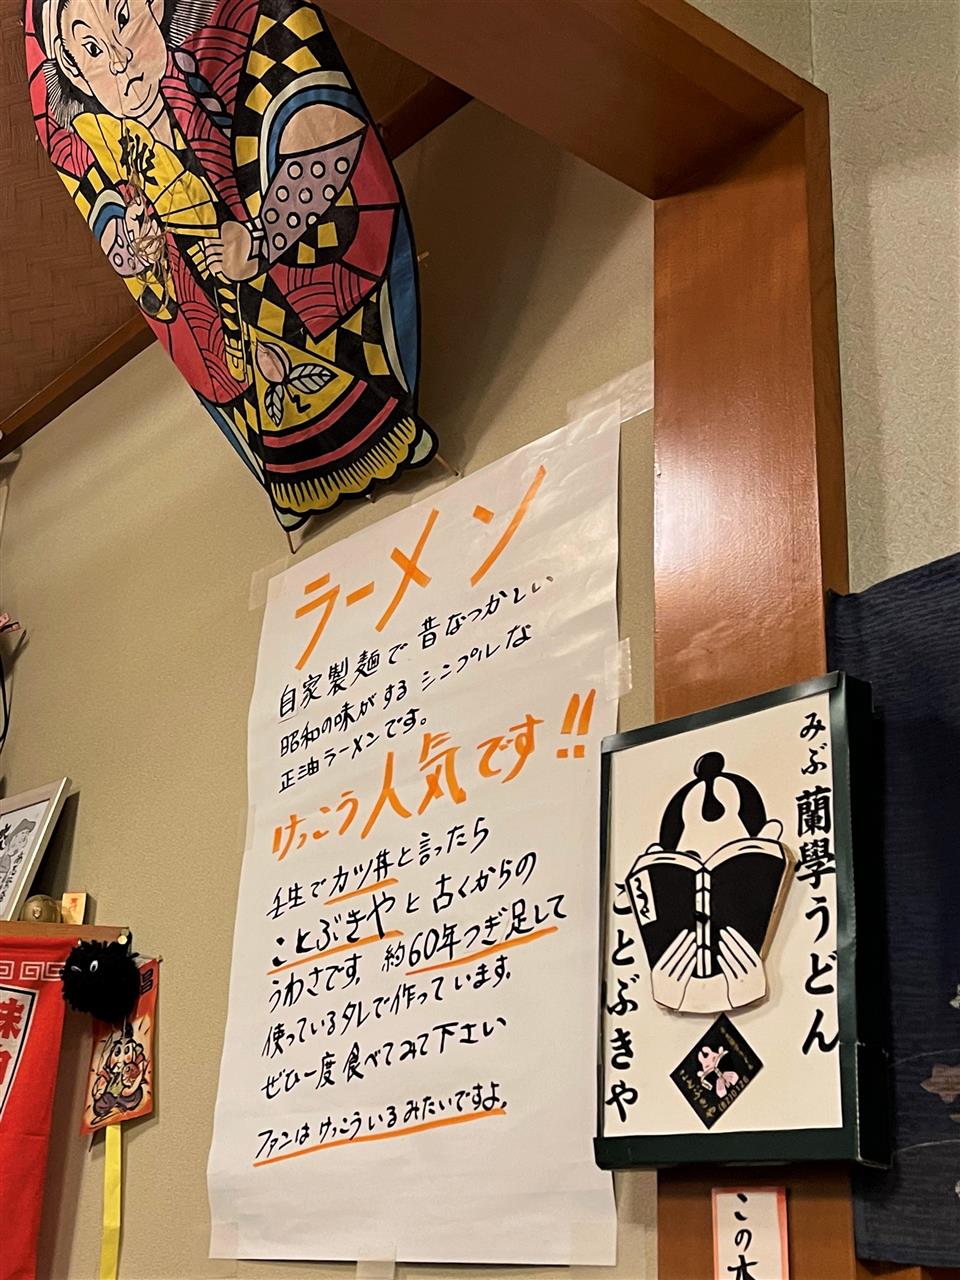 桃
ラーメン
自家製麺で昔なつかしい
昭和の味がするシンプルな
正油ラーメンです。
けっこう人気です!!
壬生でカツ丼と言ったら
ことぶきやと古くからの
うわさです。約60年つぎ足して
使っているタレで作っています。
ぜひ一度食べてみて下さい
ファンはけっこういるみたいですよ。
みぶ蘭學うどん
ことぶきや
この木
味自